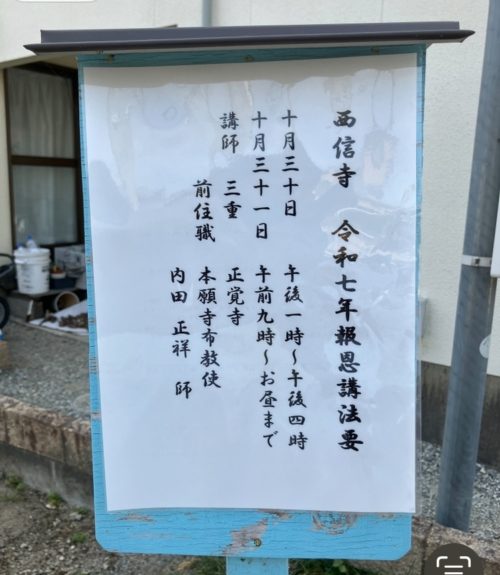 西信寺　令和七年報恩講法要
十月三十日　午後一時～午後四時
十月三十一日　午前九時～お昼まで
講師　三重　正覚寺
前住職　本願寺布教使
内田　正祥　師